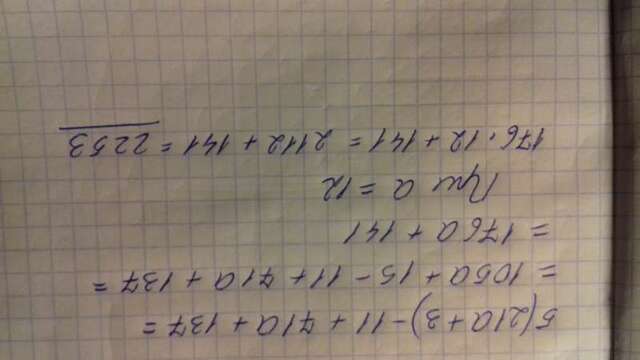 5(21а+3)-11+71а+137=
=105а+15-11+71а+137=
=176а+141
При а=12
176·12+141=2112+141=2253